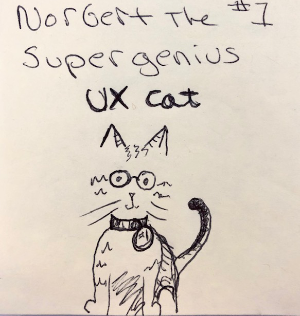 Norgert The #1
Supergenius
UX cat
#1